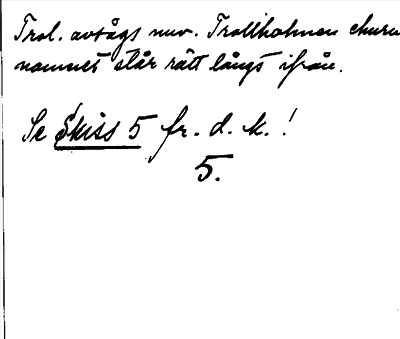 Trol. avsågs nuv. Trollholmen ehuru
namnet står rätt långt ifrån.
Se Skiss 5 fr. d. k. !
5.